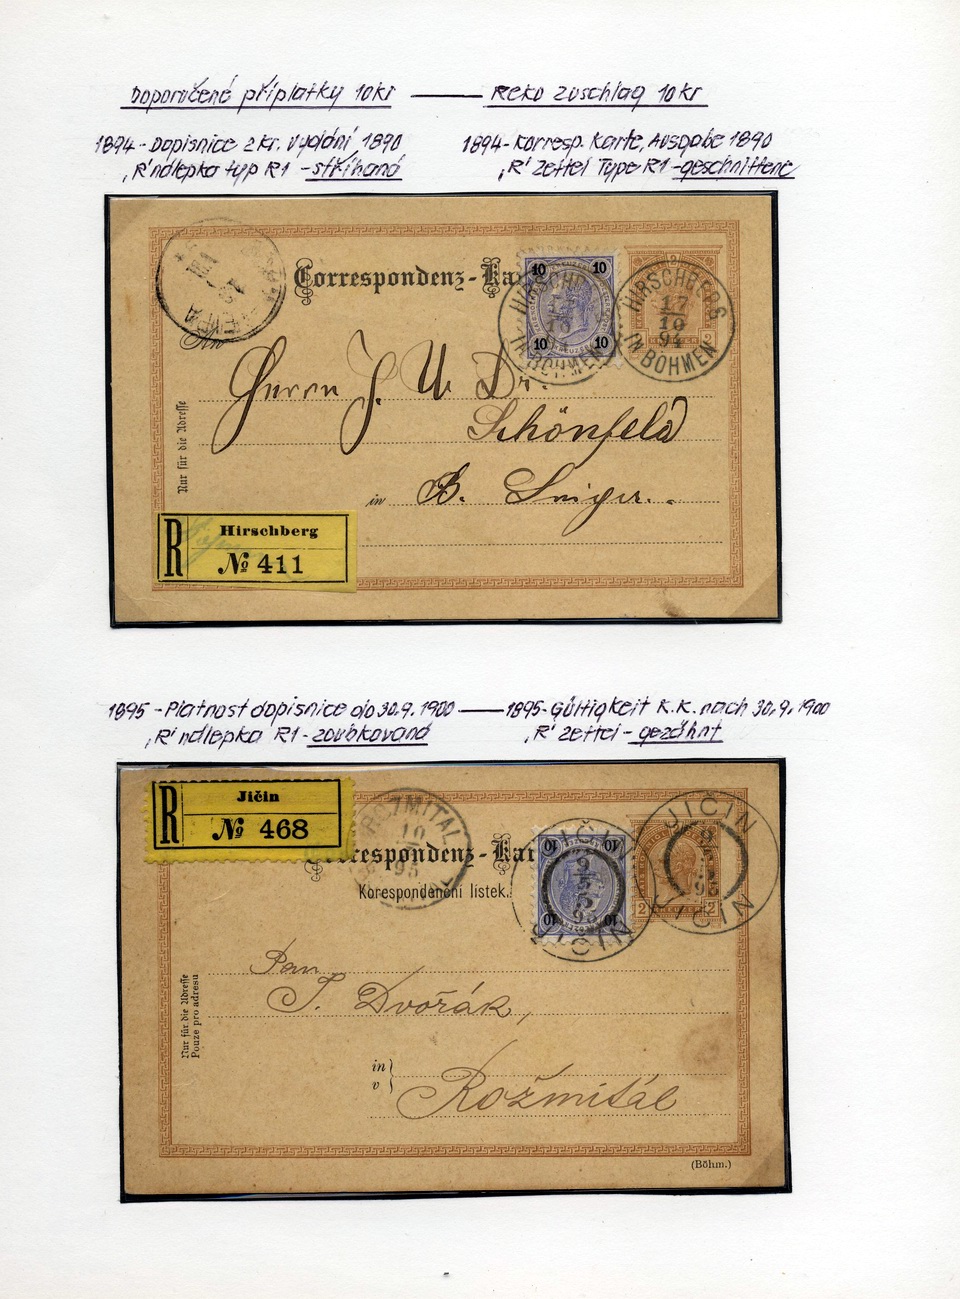 Doporučené příplatky 10kr — Reko Zuschlag 10kr
1894 - Dopisnice 2 kr. vydání 1890
'R' nálepka typ R1 - stříhaná
1894 - Korresp. Karte, Ausgabe 1890
'R' Zettel Type R1 - geschnittene
Correspondenz-Ka
10 10
10 10
HIRSCHBERG
17
10
94
IN BÖHMEN
HIRSCHBERG
17
10
94
IN BÖHMEN
2
An
Herrn J. U. Dr.
Schönfeld
in B.
Nur für die Adresse
R
Hirschberg
№ 411
1895 - Platnost dopisnice do 30.9.1900 — 1895 - Gültigkeit K.K. nach 30.9.1900
'R' nálepka R1 - zoubkovaná
'R' Zettel - gezähnt
R
Jičin
№ 468
ROZMITAL
10
95
Correspondenz-Kar
Korespondenční lístek.
10 10
10 10
JIČIN
JIČIN
JIČIN
JIČIN
2 2
Pan
J. Dvořák,
in
v
Rožmitál
Nur für die Adresse
Pouze pro adresu
(Böhm.)